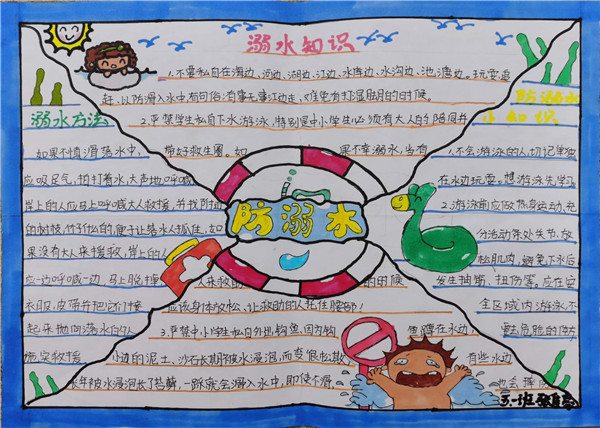 溺水知识
1.不要私自在海边、河边、湖边、江边、水库边、水沟边、池塘边、玩耍追
赶,以防滑入水中有句俗:有事无事江边走,难免有打湿鞋的时候。
2.严禁学生私自下水游泳,特别是中小学生必须有大人的陪同并
带好救生圈。如
果不幸溺水,当有
溺水方法
如果不慎滑落水中,
应吸足气,拍打着水,大声地呼喊
岸上的人应马上呼喊大人救援,并找附近
的树枝,竹子什么的便于让落水人抓住,如
果没有大人来援救,岸上的人
应一边呼喊一边马上脱掉
衣服,皮带并把它们接
起来抛向落水的人
施实救援
防溺水
防溺水
小知识
1.不会游泳的人切记单独
在水边玩耍。想游泳先学习
2.游泳前应做热身运动,充
分活动开处关节,放
松肌肉,避免下水后
发生抽筋、扭伤等。应在安
全区域内游泳,不
人来救助
的时候
应该身体放松,让救助的人托住腰部!
3.严禁中小学生私自外出钓鱼,因为钓
鱼蹲在水边,
小边的泥土、沙石长期被水浸泡,而变很松散,
有些水边
长年被水浸泡长了苔藓,一踩就会溺入水中,即使不溺,
三.一班